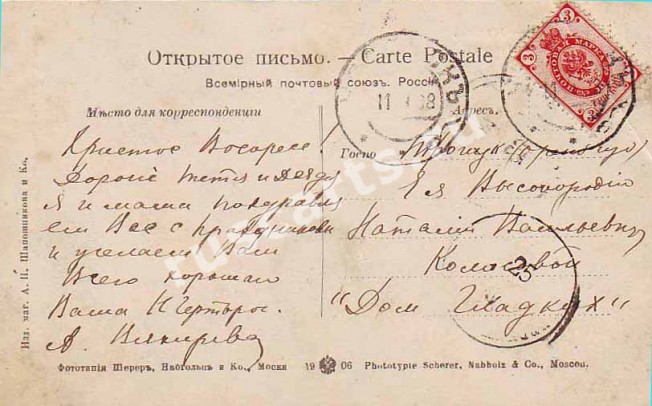 Открытое письмо. — Carte Postale
Всемірный почтовый союзъ. Россія
Мѣсто для корреспонденціи
Адресъ.
Христос Воскресе!
Дорогіе Тетя и Дядя
Я и мама поздравля
ем Вас с праздником
и желаем Вам
Всего хорошаго
Ваша
А.
Госпо
Троицк
Ея Высокородію
Наталіи Васильевны
"Дом Гладких"
3
3
3
11 08
25
Изд. маг. А. П. Шапошникова и Ко.
Фототипія Шереръ, Набгольцъ и Ко., Москва 19 06 Phototypie Scherer, Nabholz & Co., Moscou.